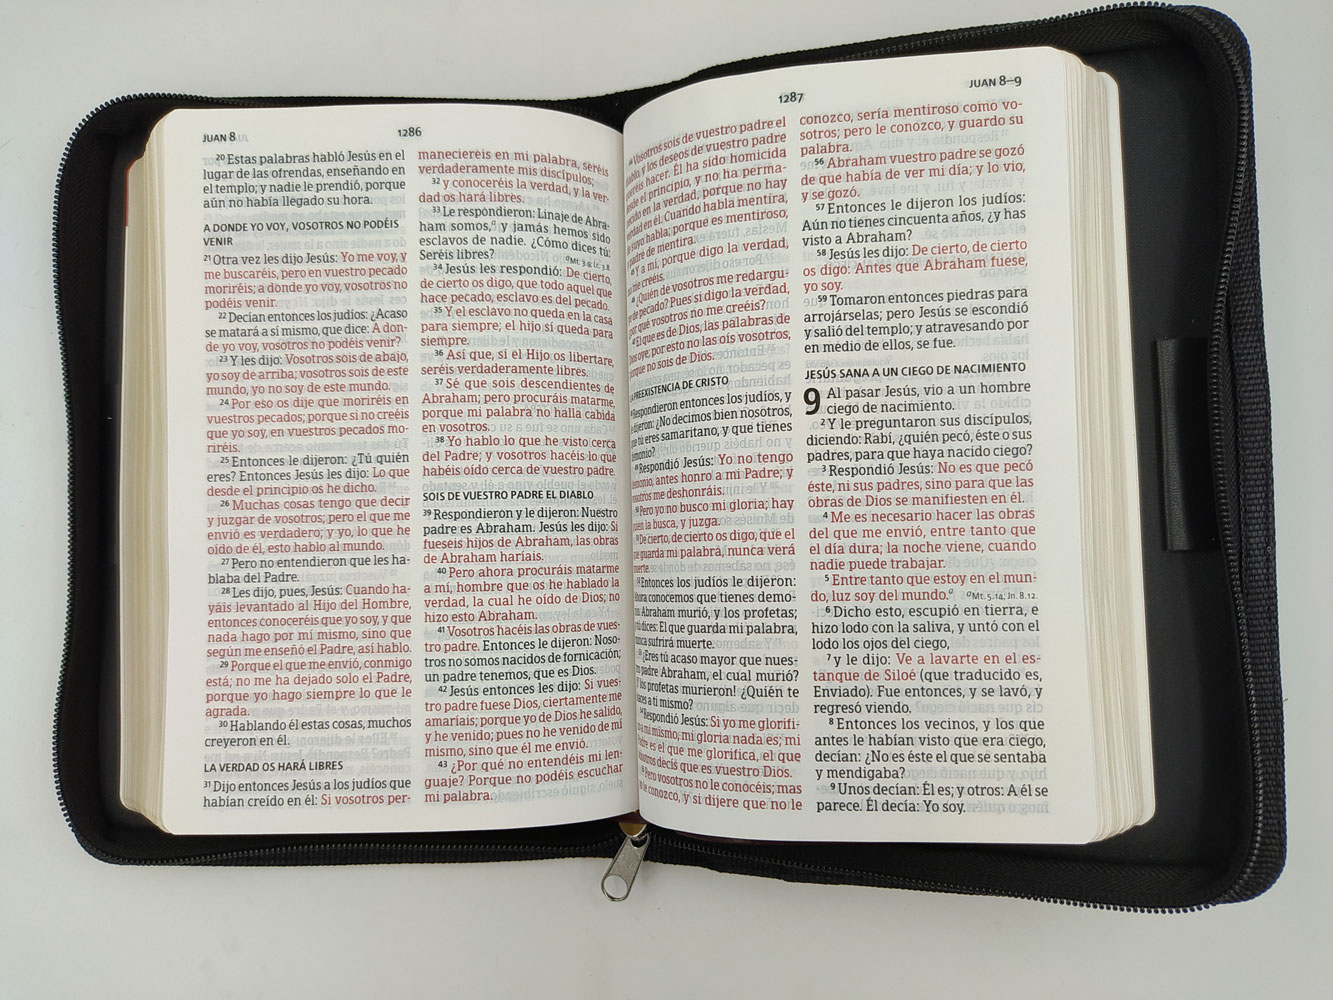 JUAN 8
1286
20 Estas palabras habló Jesús en el
lugar de las ofrendas, enseñando en
el templo; y nadie le prendió, porque
aún no había llegado su hora.
A DONDE YO VOY, VOSOTROS NO PODÉIS
VENIR
21 Otra vez les dijo Jesús: Yo me voy, y
me buscaréis, pero en vuestro pecado
moriréis; a donde yo voy, vosotros no
podéis venir.
22 Decían entonces los judíos: ¿Acaso
se matará a sí mismo, que dice: A don-
de yo voy, vosotros no podéis venir?
23 Y les dijo: Vosotros sois de abajo,
yo soy de arriba; vosotros sois de este
mundo, yo no soy de este mundo.
24 Por eso os dije que moriréis en
vuestros pecados; porque si no creéis
que yo soy, en vuestros pecados mo-
riréis.
25 Entonces le dijeron: ¿Tú quién
eres? Entonces Jesús les dijo: Lo que
desde el principio os he dicho.
26 Muchas cosas tengo que decir
y juzgar de vosotros; pero el que me
envió es verdadero; y yo, lo que he
oído de él, esto hablo al mundo.
27 Pero no entendieron que les ha-
blaba del Padre.
28 Les dijo, pues, Jesús: Cuando ha-
yáis levantado al Hijo del Hombre,
entonces conoceréis que yo soy, y que
nada hago por mí mismo, sino que
según me enseñó el Padre, así hablo.
29 Porque el que me envió, conmigo
está; no me ha dejado solo el Padre,
porque yo hago siempre lo que le
agrada.
30 Hablando él estas cosas, muchos
creyeron en él.
LA VERDAD OS HARÁ LIBRES
31 Dijo entonces Jesús a los judíos que
habían creído en él: Si vosotros per-
maneciereis en mi palabra, seréis
verdaderamente mis discípulos;
32 y conoceréis la verdad, y la ver-
dad os hará libres.
33 Le respondieron: Linaje de Abra-
ham somos,a y jamás hemos sido
esclavos de nadie. ¿Cómo dices tú:
Seréis libres? aMt. 3.9; Lc. 3.8.
34 Jesús les respondió: De cierto,
de cierto os digo, que todo aquel que
hace pecado, esclavo es del pecado.
35 Y el esclavo no queda en la casa
para siempre; el hijo sí queda para
siempre.
36 Así que, si el Hijo os libertare,
seréis verdaderamente libres.
37 Sé que sois descendientes de
Abraham; pero procuráis matarme,
porque mi palabra no halla cabida
en vosotros.
38 Yo hablo lo que he visto cerca
del Padre; y vosotros hacéis lo que
habéis oído cerca de vuestro padre.
SOIS DE VUESTRO PADRE EL DIABLO
39 Respondieron y le dijeron: Nuestro
padre es Abraham. Jesús les dijo: Si
fueseis hijos de Abraham, las obras
de Abraham haríais.
40 Pero ahora procuráis matarme
a mí, hombre que os he hablado la
verdad, la cual he oído de Dios; no
hizo esto Abraham.
41 Vosotros hacéis las obras de vues-
tro padre. Entonces le dijeron: Noso-
tros no somos nacidos de fornicación;
un padre tenemos, que es Dios.
42 Jesús entonces les dijo: Si vues-
tro padre fuese Dios, ciertamente me
amaríais; porque yo de Dios he salido,
y he venido; pues no he venido de mí
mismo, sino que él me envió.
43 ¿Por qué no entendéis mi len-
guaje? Porque no podéis escuchar
mi palabra.
1287
JUAN 8–9
Vosotros sois de vuestro padre el
diablo, y los deseos de vuestro padre
queréis hacer. Él ha sido homicida
desde el principio, y no ha perma-
necido en la verdad, porque no hay
verdad en él. Cuando habla mentira,
de suyo habla; porque es mentiroso,
y padre de mentira.
Y a mí, porque digo la verdad,
no me creéis.
¿Quién de vosotros me redargu-
ye de pecado? Pues si digo la verdad,
¿por qué vosotros no me creéis?
El que es de Dios, las palabras de
Dios oye; por esto no las oís vosotros,
porque no sois de Dios.
LA PREEXISTENCIA DE CRISTO
Respondieron entonces los judíos, y
le dijeron: ¿No decimos bien nosotros,
que tú eres samaritano, y que tienes
demonio?
49 Respondió Jesús: Yo no tengo
demonio, antes honro a mi Padre; y
vosotros me deshonráis.
Pero yo no busco mi gloria; hay
quien la busca, y juzga.
De cierto, de cierto os digo, que el
que guarda mi palabra, nunca verá
muerte.
Entonces los judíos le dijeron:
Ahora conocemos que tienes demo-
nio. Abraham murió, y los profetas;
y tú dices: El que guarda mi palabra,
nunca sufrirá muerte.
¿Eres tú acaso mayor que nues-
tro padre Abraham, el cual murió?
¡Y los profetas murieron! ¿Quién te
haces a ti mismo?
Respondió Jesús: Si yo me glorifi-
co a mí mismo, mi gloria nada es; mi
Padre es el que me glorifica, el que
vosotros decís que es vuestro Dios.
Pero vosotros no le conocéis; mas
yo le conozco, y si dijere que no le
conozco, sería mentiroso como vo-
sotros; pero le conozco, y guardo su
palabra.
56 Abraham vuestro padre se gozó
de que había de ver mi día; y lo vio,
y se gozó.
57 Entonces le dijeron los judíos:
Aún no tienes cincuenta años, ¿y has
visto a Abraham?
58 Jesús les dijo: De cierto, de cierto
os digo: Antes que Abraham fuese,
yo soy.
59 Tomaron entonces piedras para
arrojárselas; pero Jesús se escondió
y salió del templo; y atravesando por
en medio de ellos, se fue.
JESÚS SANA A UN CIEGO DE NACIMIENTO
9 Al pasar Jesús, vio a un hombre
ciego de nacimiento.
2 Y le preguntaron sus discípulos,
diciendo: Rabí, ¿quién pecó, éste o sus
padres, para que haya nacido ciego?
3 Respondió Jesús: No es que pecó
éste, ni sus padres, sino para que las
obras de Dios se manifiesten en él.
4 Me es necesario hacer las obras
del que me envió, entre tanto que
el día dura; la noche viene, cuando
nadie puede trabajar.
5 Entre tanto que estoy en el mun-
do, luz soy del mundo.a aMt. 5.14; Jn. 8.12.
6 Dicho esto, escupió en tierra, e
hizo lodo con la saliva, y untó con el
lodo los ojos del ciego,
7 y le dijo: Ve a lavarte en el es-
tanque de Siloé (que traducido es,
Enviado). Fue entonces, y se lavó, y
regresó viendo,
8 Entonces los vecinos, y los que
antes le habían visto que era ciego,
decían: ¿No es éste el que se sentaba
y mendigaba?
9 Unos decían: Él es; y otros: A él se
parece. Él decía: Yo soy.